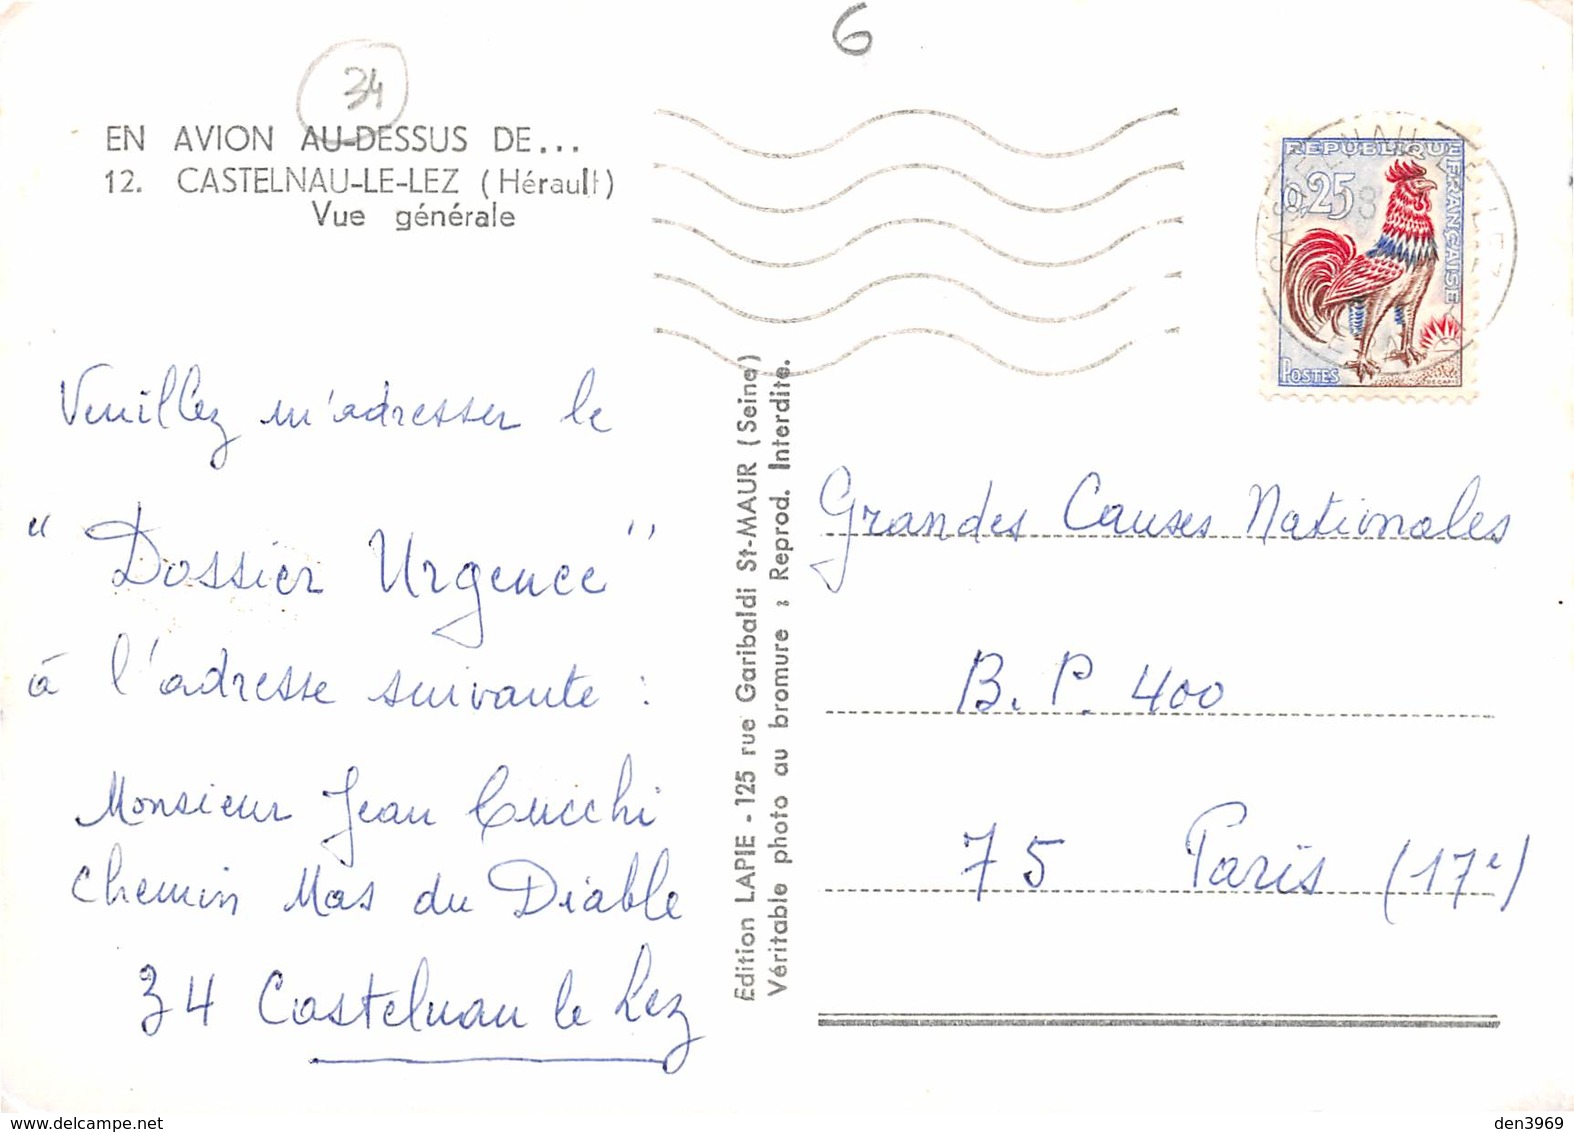 6
34
EN AVION AU-DESSUS DE...
12. CASTELNAU-LE-LEZ (Hérault)
Vue générale
REPUBLIQUE
FRANÇAISE
0,25
POSTES
DECARIS
Veuillez m'adresser le
“Dossier Urgence”
à l'adresse suivante :
Monsieur Jean Cucchi
Chemin Mas du Diable
34 Castelnau le Lez
Edition LAPIE - 125 rue Garibaldi St-MAUR (Seine)
Véritable photo au bromure ; Reprod. Interdite.
Grandes Causes Nationales
B.P. 400
75 Paris (17e)
delcampe.net
den3969